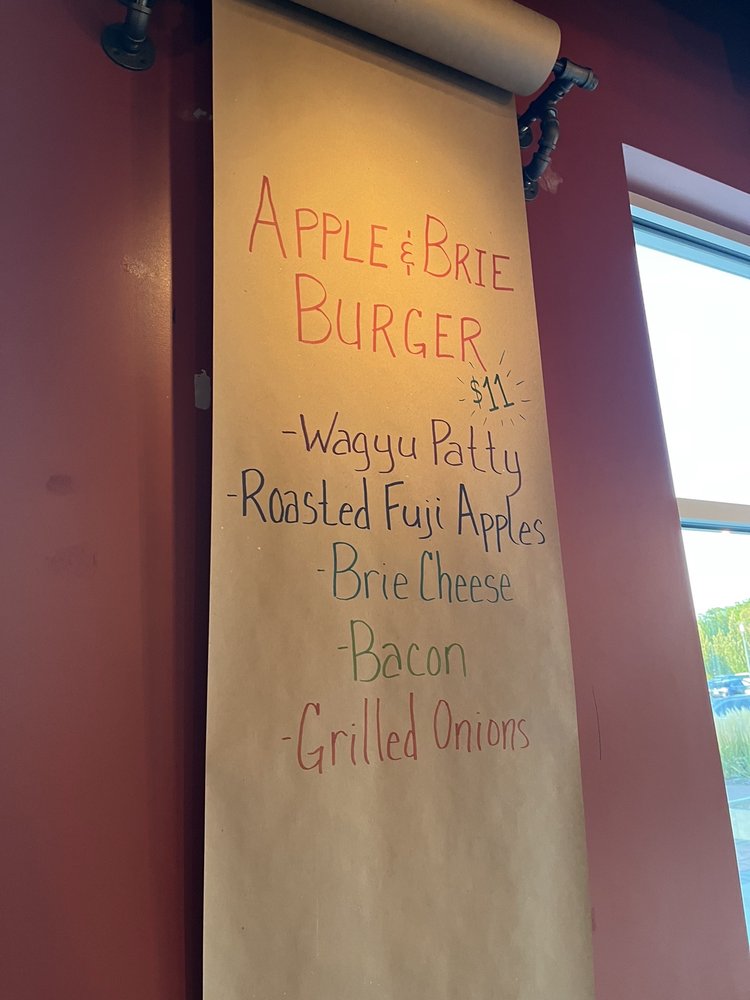 APPLE & BRIE
BURGER
$11
-Wagyu Patty
-Roasted Fuji Apples
-Brie Cheese
-Bacon
-Grilled Onions